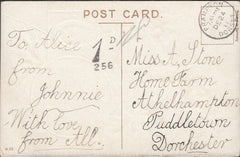 POST CARD.
To, Alice
from
Johnnie
With Love
from All.
1 D
256
Miss A, Stone
Home Farm
Athelhampton
Puddletown
Dorchester